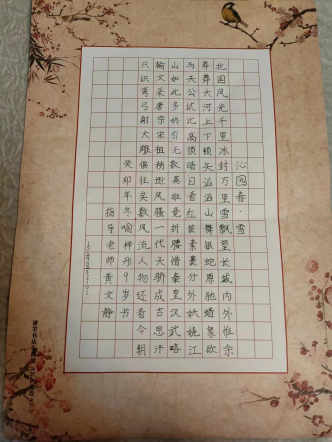 沁园春·雪
北国风光千里冰封万里雪飘望长城内外惟余
莽莽大河上下顿失滔滔山舞银蛇原驰蜡象欲
与天公试比高须晴日看红装素裹分外妖娆江
山如此多娇引无数英雄竞折腰惜秦皇汉武略
输文采唐宗宋祖稍逊风骚一代天骄成吉思汗
只识弯弓射大雕俱往矣数风流人物还看今朝
癸卯年冬喻梓丹9岁书
指导老师黄文静